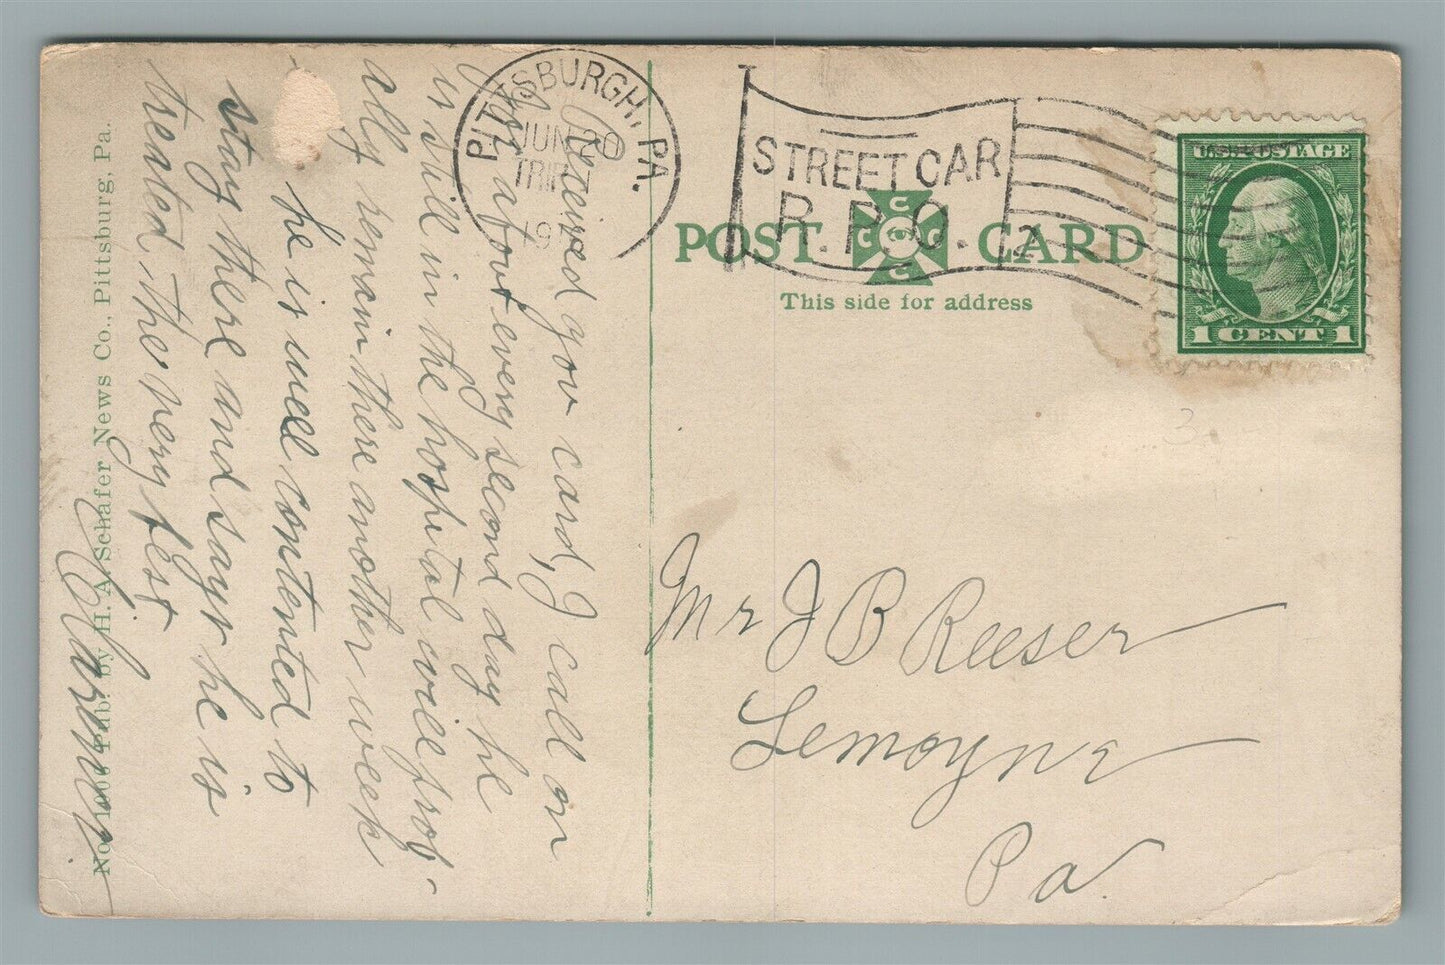 PITTSBURGH, PA.
JUN 20
TRIP
191
STREET CAR
R. P. O.
2
U.S. POSTAGE
1 CENT 1
POST CARD
This side for address
Received your card, I call on
about every second day he
is still in the hospital will prob-
ally remain there another week
he is well contented to
stay there and says he is
treated the very best
No. 1000 Pub. by H. A. Schafer News Co., Pittsburg, Pa.
3
Mr J B Reeser
Lemoyne
Pa.